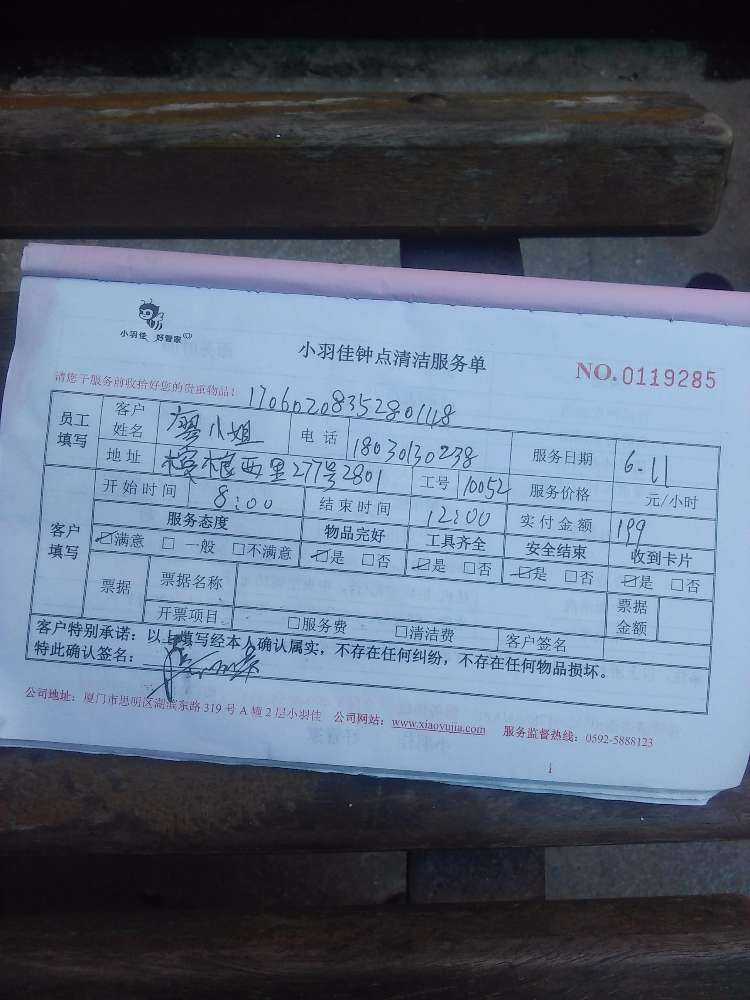 小羽佳 好管家
小羽佳钟点清洁服务单
NO.0119285
请您于服务前收拾好您的贵重物品！ 17060208352801148
员工填写 客户姓名 廖小姐 电话 18030130238 服务日期 6.11
地址 西里277号2801 工号 10052 服务价格 元/小时
客户填写 开始时间 8:00 结束时间 12:00 实付金额 199
服务态度 物品完好 工具齐全 安全结束 收到卡片
☑满意 □一般 □不满意 ☑是 □否 ☑是 □否 ☑是 □否 ☑是 □否
票据 票据名称 票据金额
开票项目 □服务费 □清洁费 客户签名
客户特别承诺：以上填写经本人确认属实，不存在任何纠纷，不存在任何物品损坏。
特此确认签名：
公司地址：厦门市思明区湖滨东路 319 号 A 幢 2 层小羽佳 公司网站：www.xiaoyujia.com 服务监督热线：0592-5888123